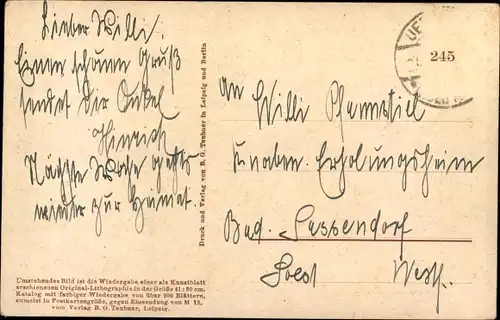 Lieber Willi.
Einen schönen Gruß
sendet Dir Onkel
Hinrich
Nächste Woche gehts
wieder zur Heimat.
Umstehendes Bild ist die Wiedergabe einer als Kunstblatt
erschienenen Original-Lithographie in der Größe 41:30 cm.
Katalog mit farbiger Wiedergabe von über 200 Blättern,
zumeist in Postkartengröße, gegen Einsendung von M 15.
vom Verlag B. G. Teubner, Leipzig.
Druck und Verlag von B. G. Teubner in Leipzig und Berlin
245
An Willi Pfannstiel
Knaben. Erholungsheim
Bad. Sassendorf
Soest Westf.